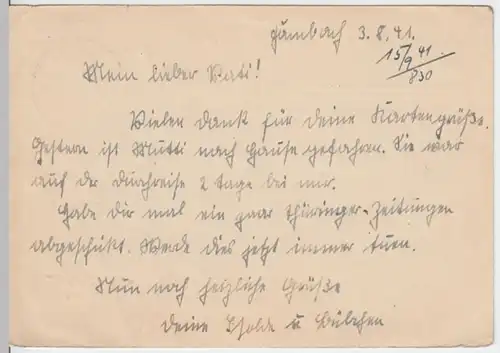 Gambach 3.8.41.
15/9 41.
830
Mein lieber Vati!
Vielen Dank für deine Kartengrüße.
Gestern ist Mutti nach Hause gefahren. Sie war
auf der Durchreise 2 Tage bei mir.
Habe Dir mal ein paar Thüringer-Zeitungen
abgeschikt. Werde dies jetzt immer tuen.
Nun noch herzliche Grüße
Deine Isolde u